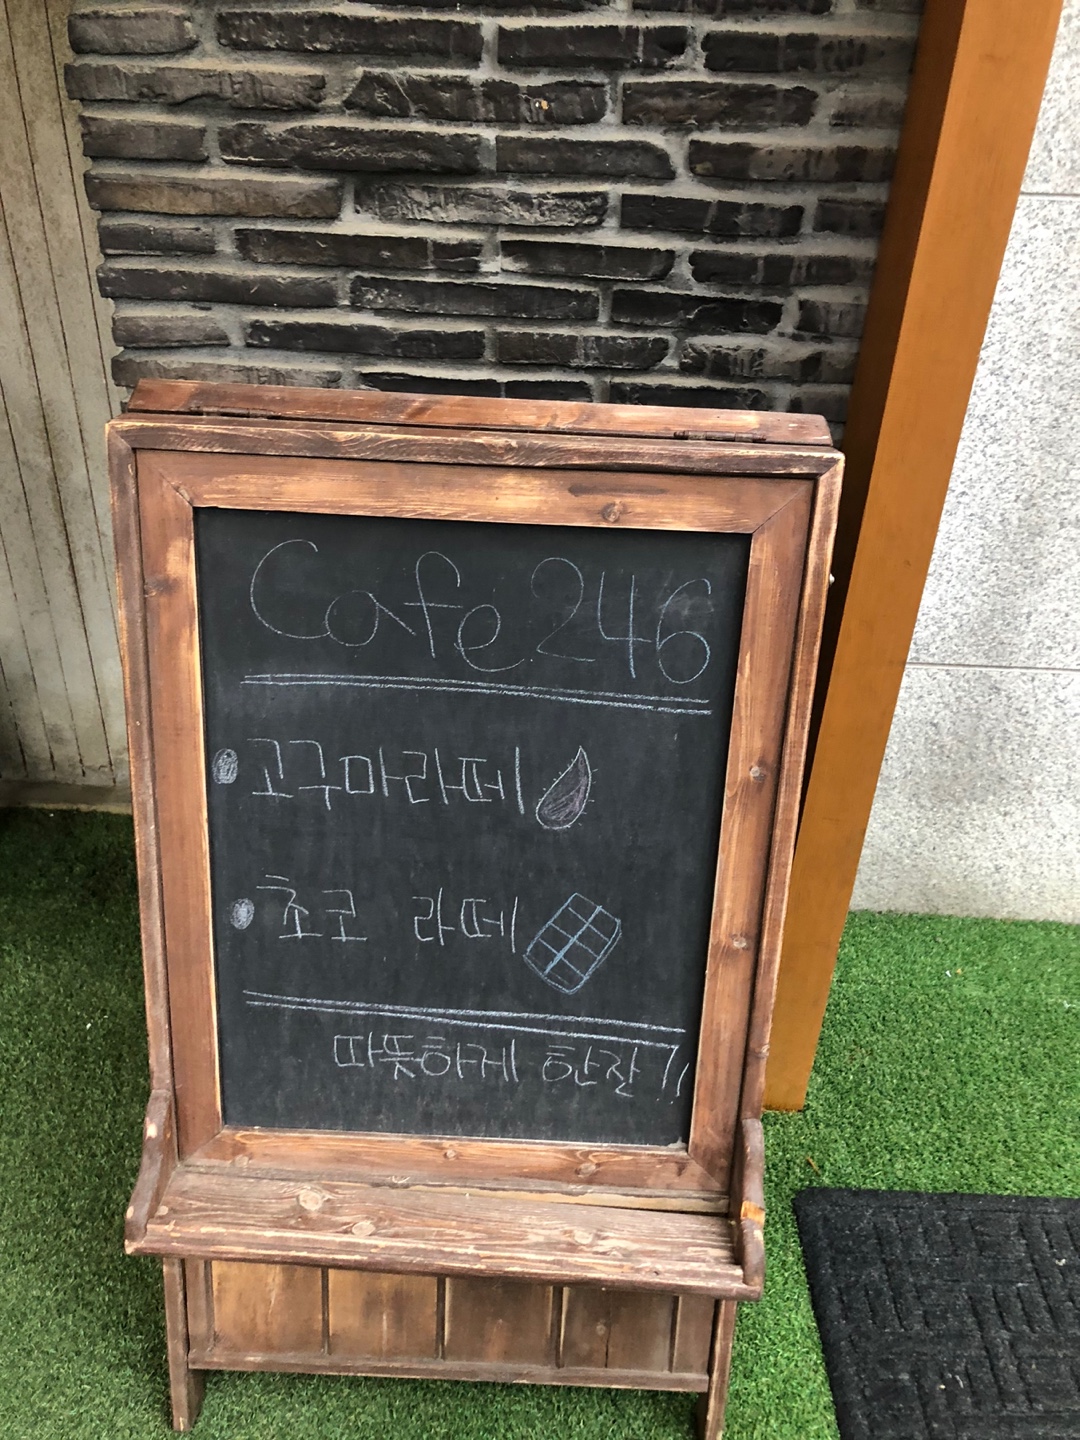 Cafe 246
고구마라떼
초코 라떼
따뜻하게 한잔!!